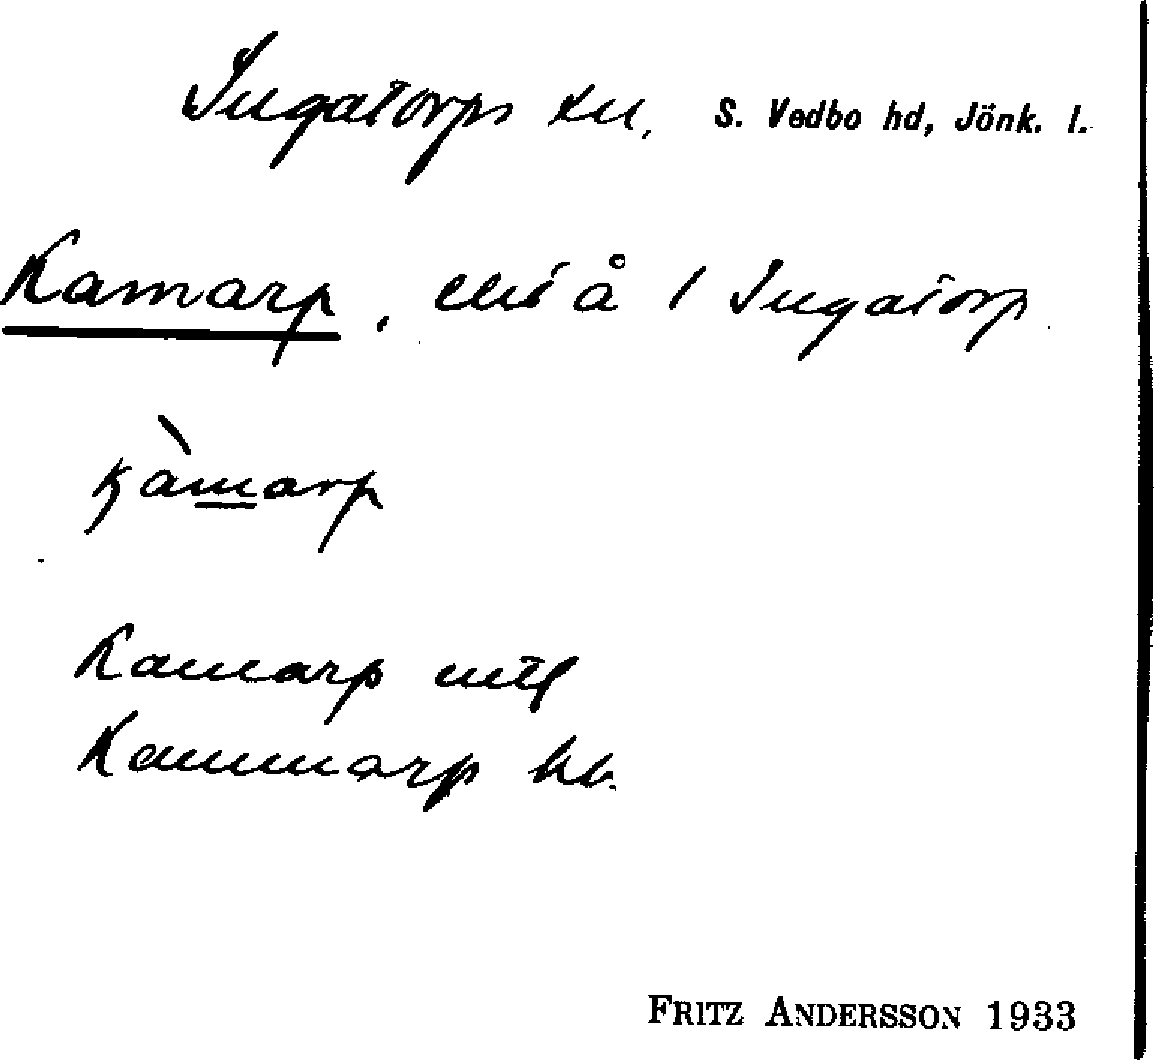 Ingatorps sn, S. Vedbo hd, Jönk. l.
Kamarp, å 1 Ingatorp
kàmarp
Kamarp mtl
Kammarp hb.
FRITZ ANDERSSON 1933